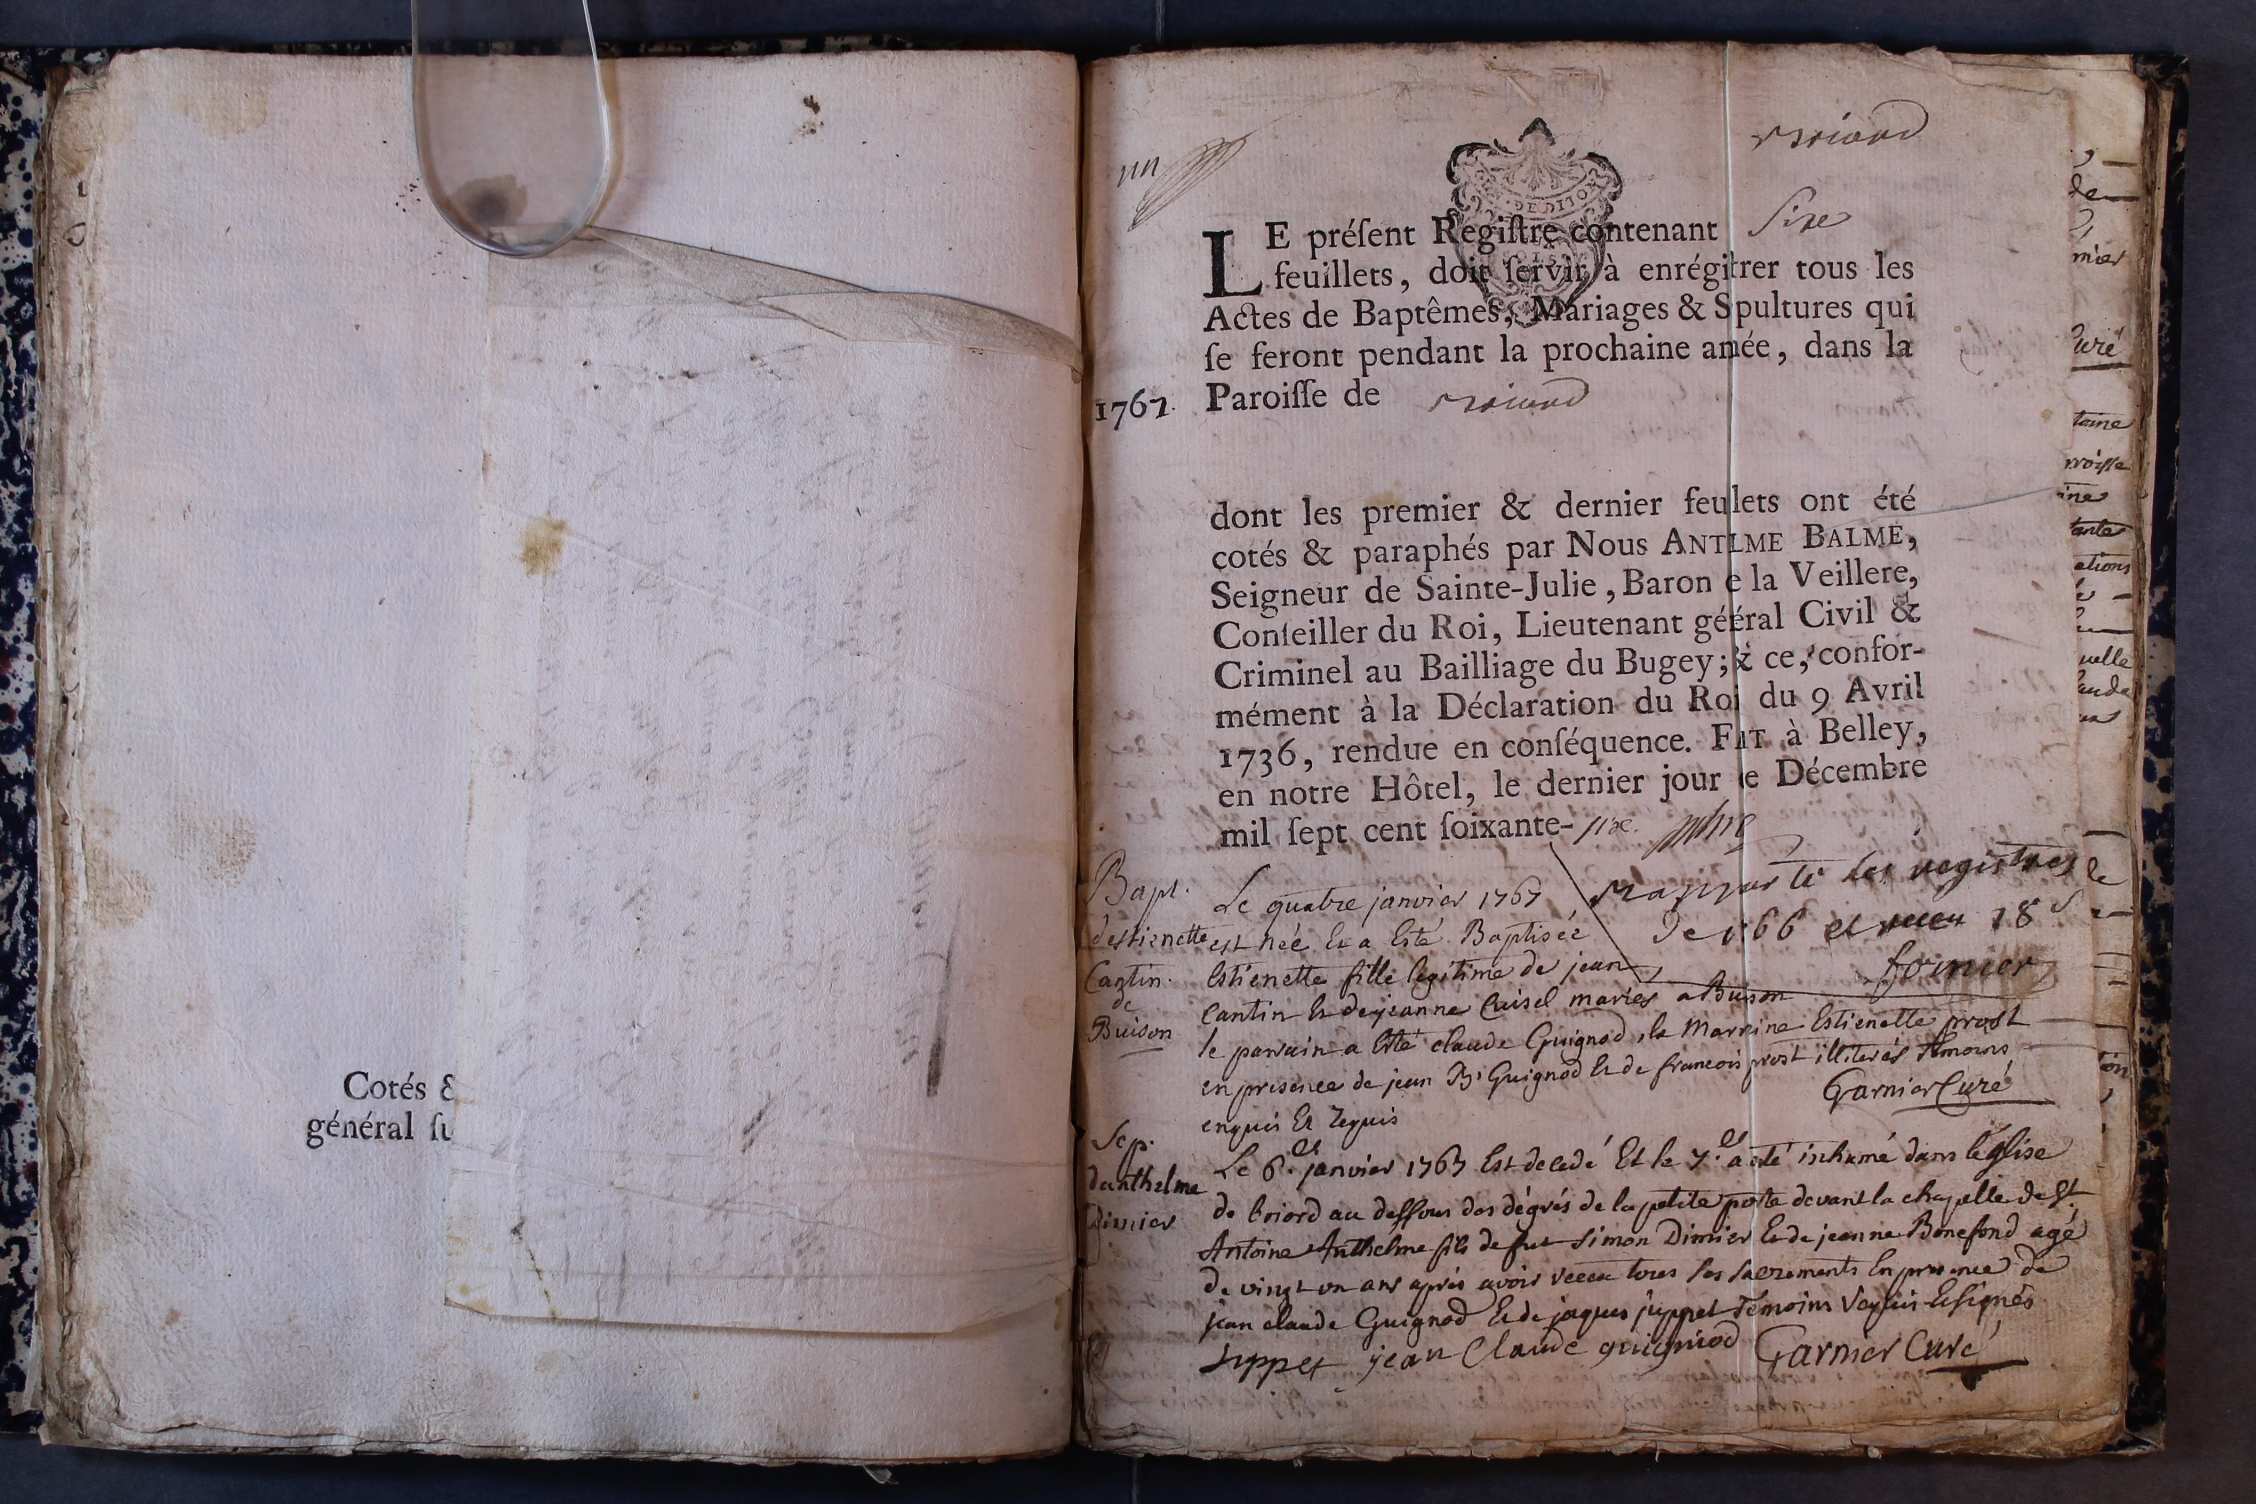 Cotés &
général su
un
Briord
LE préſent Regiſtre contenant Sixe
feuillets, doit ſervir à enrégitrer tous les
Actes de Baptêmes, Mariages & Spultures qui
ſe feront pendant la prochaine anée, dans la
1767. Paroiſſe de Briord
dont les premier & dernier feulets ont été
cotés & paraphés par Nous ANTLME BALME,
Seigneur de Sainte-Julie, Baron e la Veillere,
Conſeiller du Roi, Lieutenant gééral Civil &
Criminel au Bailliage du Bugey; & ce, confor-
mément à la Déclaration du Roi du 9 Avril
1736, rendue en conſéquence. FIT à Belley,
en notre Hôtel, le dernier jour e Décembre
mil ſept cent ſoixante-sixe.
Rapporté les registres
de 1766 et receu 18 s
fornier
Bapt.
d'estienette
Cantin
de
Buison
Le quatre janvier 1767
est née Et a Esté Baptisée
Estienette fille legitime de jean
Cantin Et de jeanne Cuisel mariés a Buison
le parrain a Esté claude Guignod, la Marraine Estienette prost
en presence de jean Bt Guignod Et de francois prost illiterés temoins
enquis Et requis
Garnier Curé
Sep.
danthelme
Dimier
Le 6.e janvier 1767 Est decedé Et le 7.e a esté inhumé dans léglise
de briord au dessous des dégrés de la petite porte devant la chapelle de St.
Antoine Anthelme fils de fut Simon Dimier Et de jeanne Bonefond agé
de vingt un ans aprés avoir receu tous les sacrements En presence de
jean claude Guignod Et de jaques juppet Temoins requis Et signés
juppet jean Claude guigniod Garnier Curé